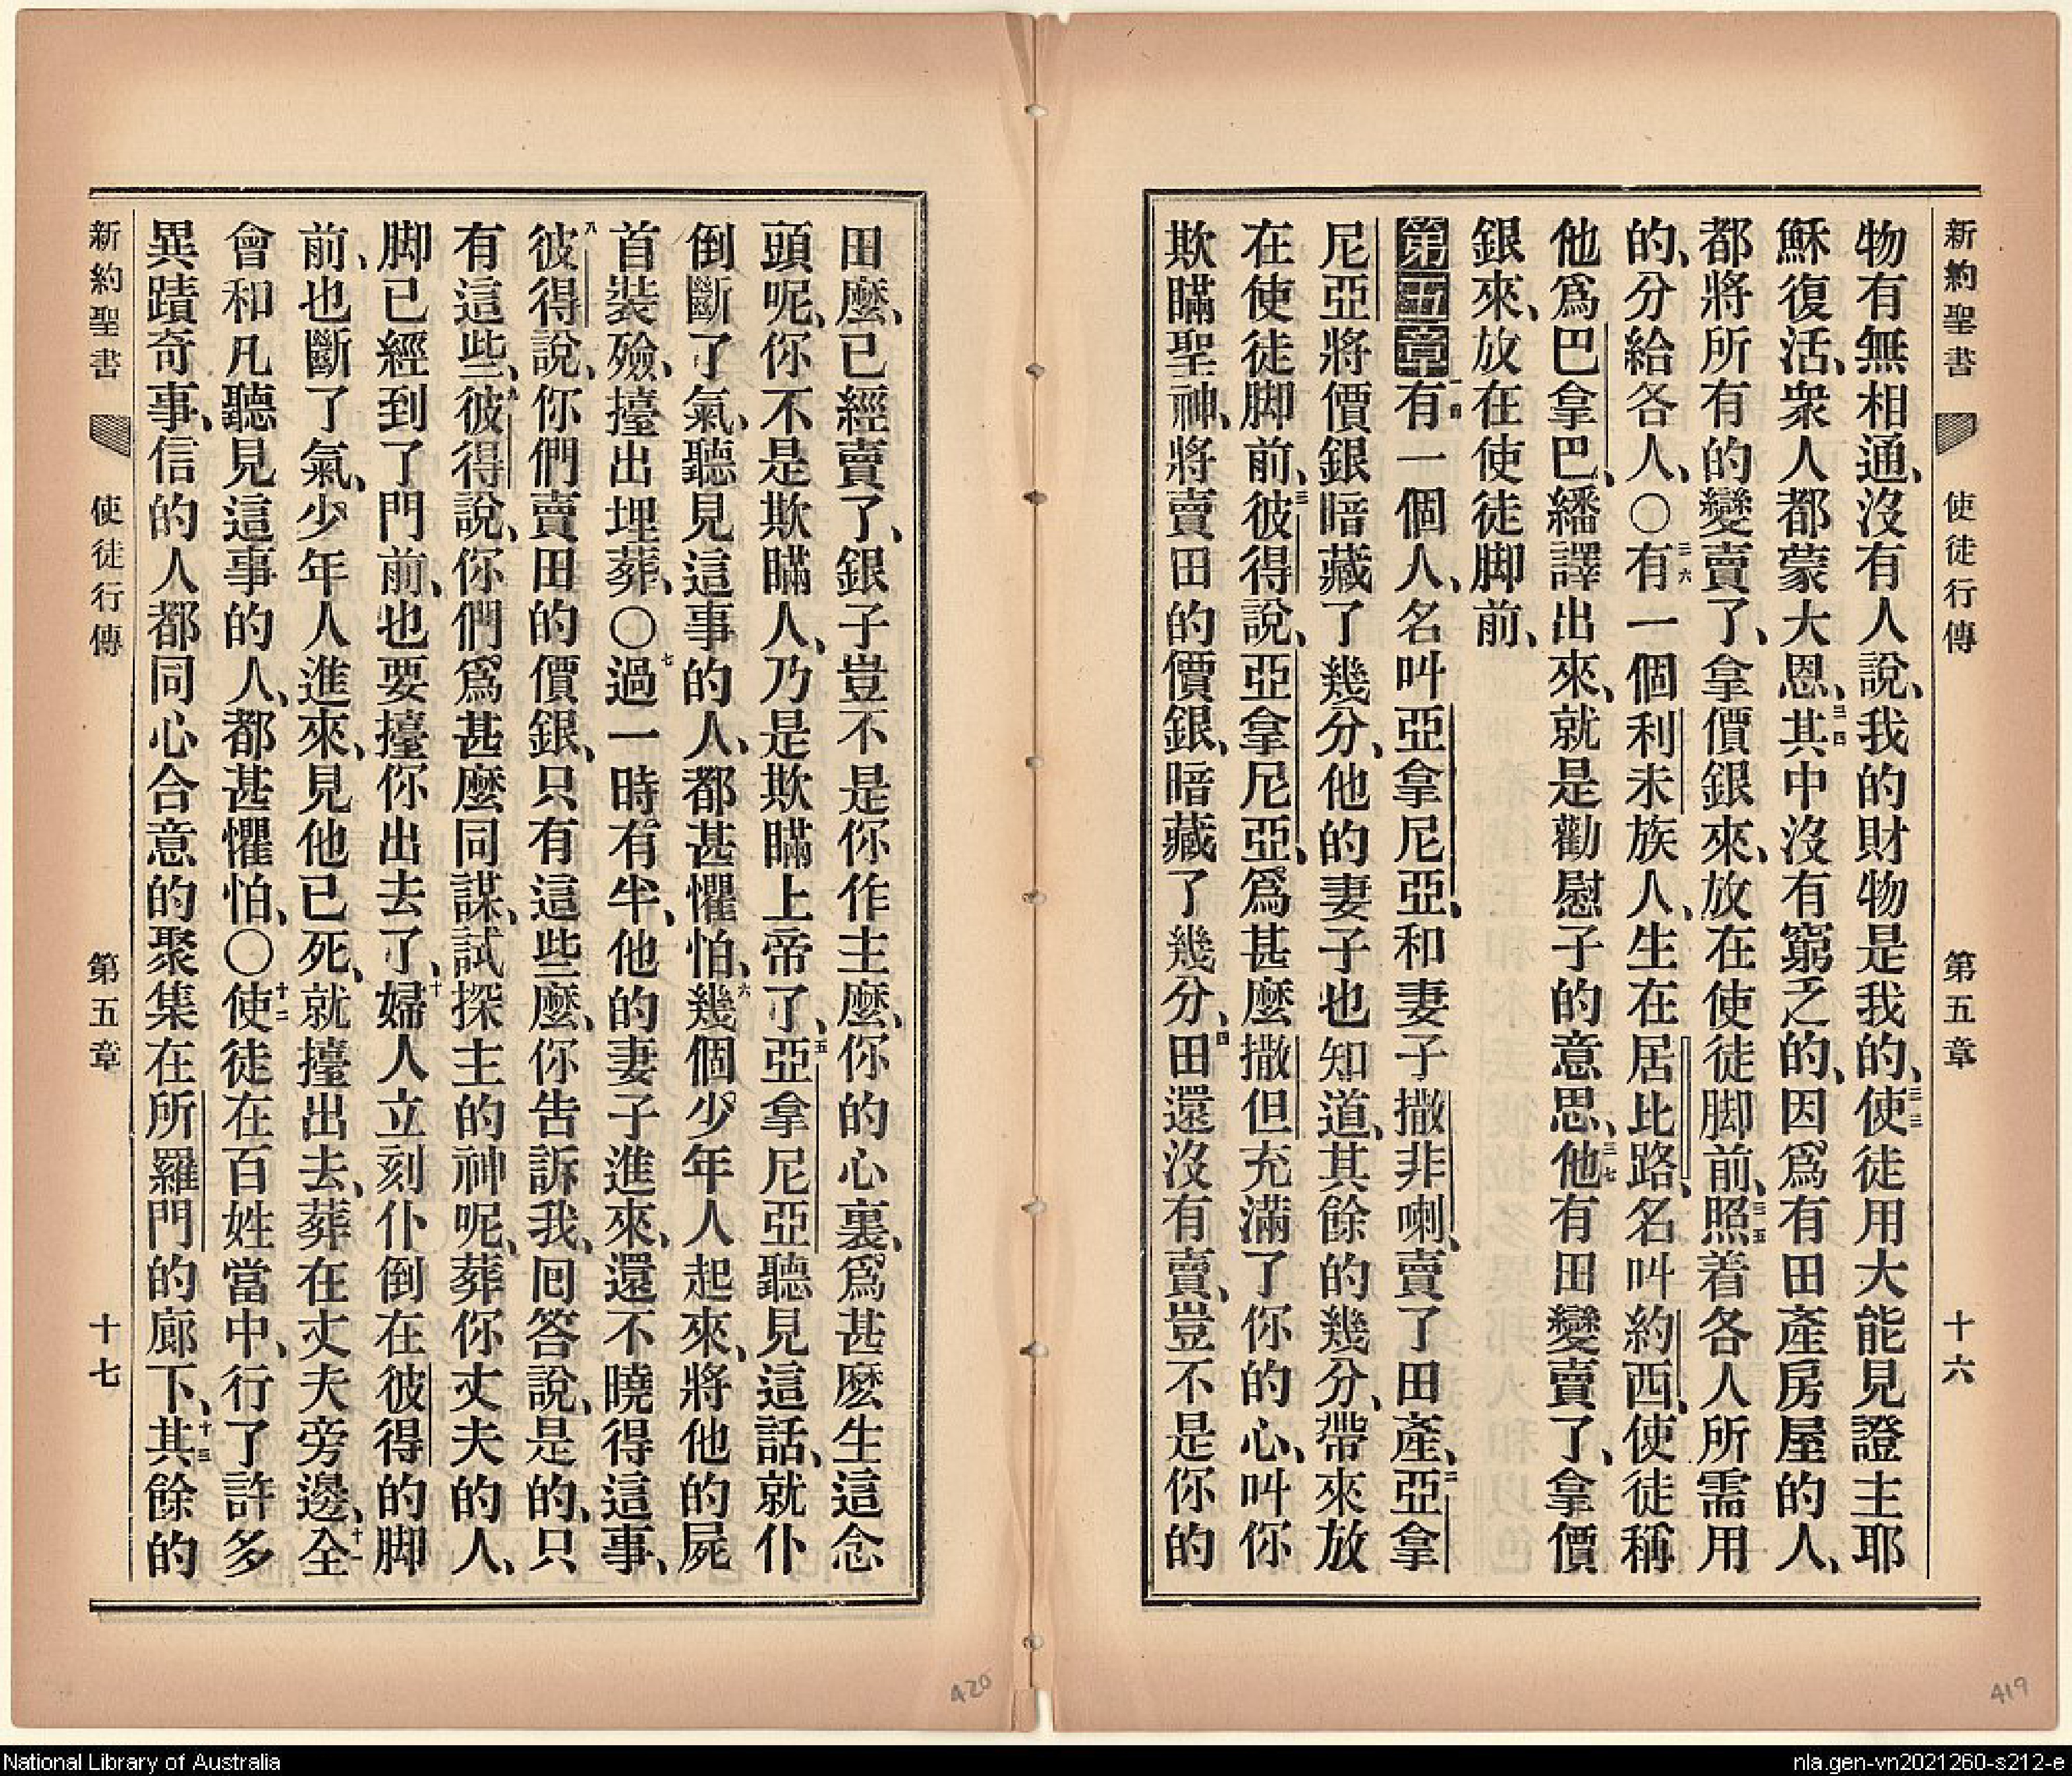 新約聖書 使徒行傳 第五章 十六
物有無相通、沒有人說、我的財物是我的、三三使徒用大能見證主耶
穌復活、衆人都蒙大恩、三四其中沒有窮乏的、因爲有田產房屋的人、
都將所有的變賣了、拿價銀來、放在使徒脚前、三五照着各人所需用
的、分給各人、〇三六有一個利未族人、生在居比路、名叫約西、使徒稱
他爲巴拿巴、繙譯出來、就是勸慰子的意思、三七他有田變賣了、拿價
銀來、放在使徒脚前、
第五章一有一個人、名叫亞拿尼亞、和妻子撒非喇、賣了田產、二亞拿
尼亞將價銀暗藏了幾分、他的妻子也知道、其餘的幾分、帶來放
在使徒脚前、三彼得說、亞拿尼亞、爲甚麼撒但充滿了你的心、叫你
欺瞞聖神、將賣田的價銀、暗藏了幾分、四田還沒有賣、豈不是你的
田麼、已經賣了、銀子豈不是你作主麼、你的心裏、爲甚麽生這念
頭呢、你不是欺瞞人、乃是欺瞞上帝了、五亞拿尼亞聽見這話、就仆
倒斷了氣、聽見這事的人、都甚懼怕、六幾個少年人起來、將他的屍
首裝殮、擡出埋葬、〇七過一時有半、他的妻子進來、還不曉得這事、
八彼得說、你們賣田的價銀、只有這些麼、你告訴我、囘答說、是的、只
有這些、九彼得說、你們爲甚麼同謀、試探主的神呢、葬你丈夫的人、
脚已經到了門前、也要擡你出去了、十婦人立刻仆倒在彼得的脚
前、也斷了氣、少年人進來、見他已死、就擡出去、葬在丈夫旁邊、十一全
會和凡聽見這事的人、都甚懼怕、〇十二使徒在百姓當中、行了許多
異蹟奇事、信的人都同心合意的聚集在所羅門的廊下、十三其餘的
新約聖書 使徒行傳 第五章 十七
420
419
National Library of Australia
nla.gen-vn2021260-s212-e